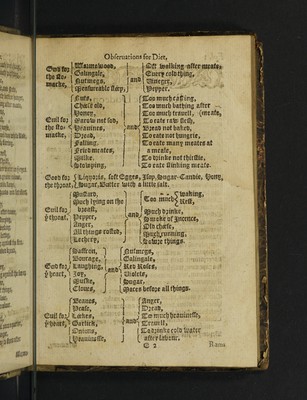 Obseruations for Diet,
Good for the stomacke,
Wormewood,
Galingale,
Nutmegs,
Measurable sleep,
and
Oft walking after meate,
Euery cold thing,
Vineger,
Pepper.
Euill for the stomacke,
Nuts,
Cheese old,
Honey,
Marow not sod,
Beanes,
Dread,
Falling,
Fried meates,
Milke,
Weeping,
and
Too much eating,
Too much bathing after meate,
Too much trauell,
To eate raw flesh,
Bread not baked,
To eate not hungrie,
To eate many meates at a meale,
To drinke not thirstie,
To eate stinking meate.
Good for the throat,
Liquoris, soft Egges, Isop, Sugar-Candie, Hony, Sugar, Butter with a little salt.
Euill for yͤ throat,
Mustard,
Much lying on the breast,
Pepper,
Anger,
All things rosted,
Lechery,
and
Too much
waking,
Rest,
Much drinke,
Smoke of Incence,
Old cheese,
Much running,
Sowre things.
Good for yͤ heart,
Saffron,
Bourage,
Laughing,
Ioy,
Muske,
Cloues,
and
Nutmegs,
Galingale,
Red Roses,
Violets,
Sugar,
Maces before all things.
Euill for yͤ heart,
Beanes,
Pease,
Leekes,
Garlick,
Onions,
Heauinesse,
and
Anger,
Dread,
Too much heauinesse,
Trauell,
To drinke cold water after labour.
C 2